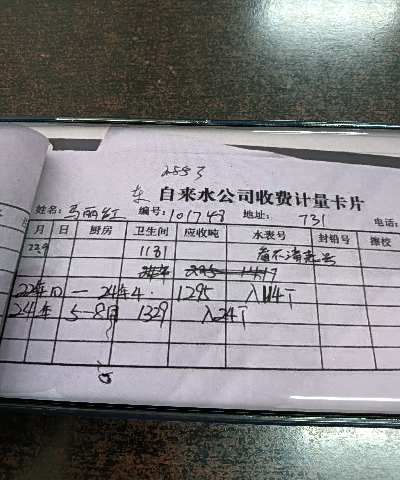 2553
东 自来水公司收费计量卡片
姓名:马丽红 编号:101748 地址: 731 电话:
月 日 厨房 卫生间 应收吨 水表号 封铅号 撤校
22.9 1131 看不清表号
22年10 — 24年4. 1295 入114丁
24年 5-8月 1329 入24丁